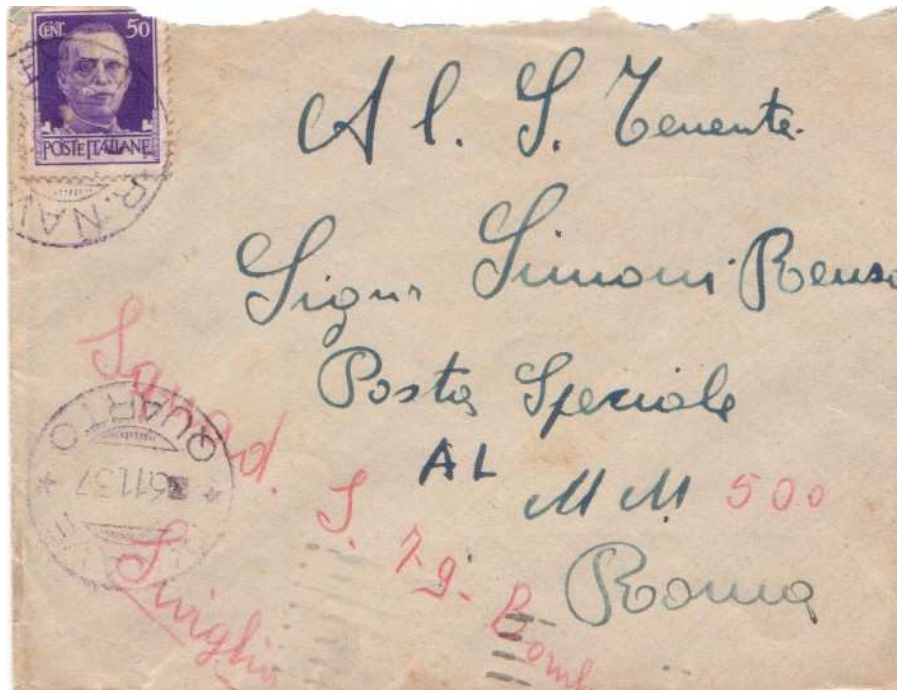 CENT. 50
POSTE ITALIANE
Al. S. Tenente
Signr Simoni Renso
Posta Speciale
AL
MM 500
Roma
Squad.
S.
Siviglia
QUARTO
6.11.37
R. NAVE
R. NAV